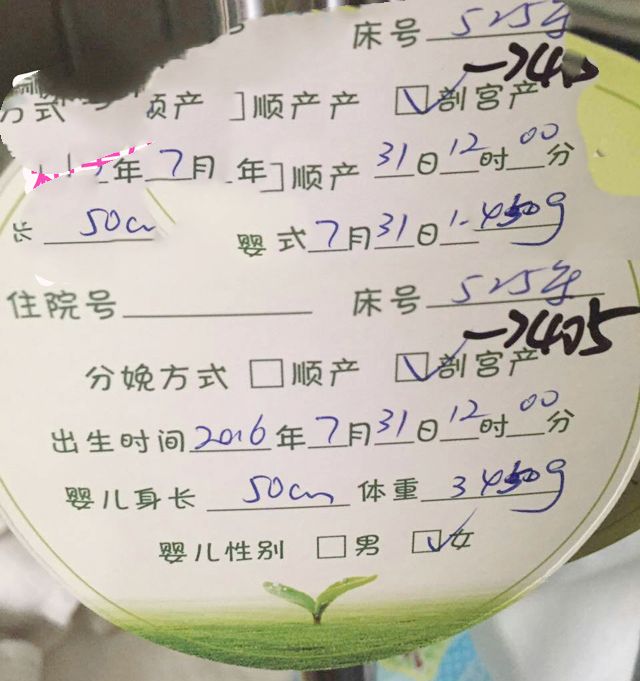 床号 525
→405
方式 顺产 ]顺产产 ☑剖宫产
年7月 年]顺产 31日12时00分
长 50cm 婴式7月31日1 450g
住院号 床号 525
→405
分娩方式 □顺产 ☑剖宫产
出生时间2016年7月31日12时00分
婴儿身长 50cm 体重 3450g
婴儿性别 □男 ☑女